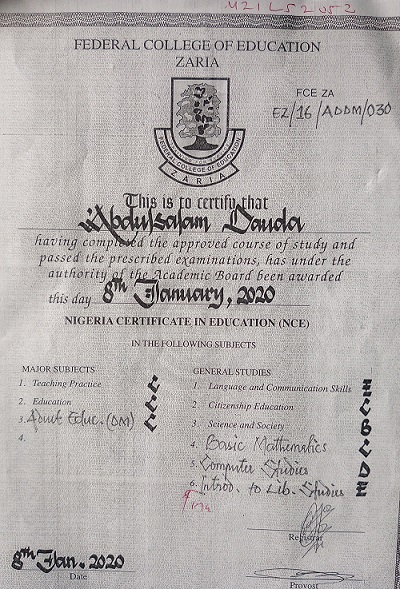 M21L52052
FEDERAL COLLEGE OF EDUCATION
ZARIA
FCE ZA
EZ/16/ADDM/030
FEDERAL COLLEGE OF EDUCATION
ZARIA
This is to certify that
Abdussalam Dauda
having completed the approved course of study and
passed the prescribed examinations, has under the
authority of the Academic Board been awarded
this day 8th January, 2020
NIGERIA CERTIFICATE IN EDUCATION (NCE)
IN THE FOLLOWING SUBJECTS
MAJOR SUBJECTS
1. Teaching Practice C
2. Education C
3. Adult Educ. (DM) C
4.
GENERAL STUDIES
1. Language and Communication Skills E
2. Citizenship Education
3. Science and Society
4. Basic Mathematics
5. Computer Studies D
6. Introd. to Lib. Studies E
Registrar
8th Jan. 2020
Date
Provost